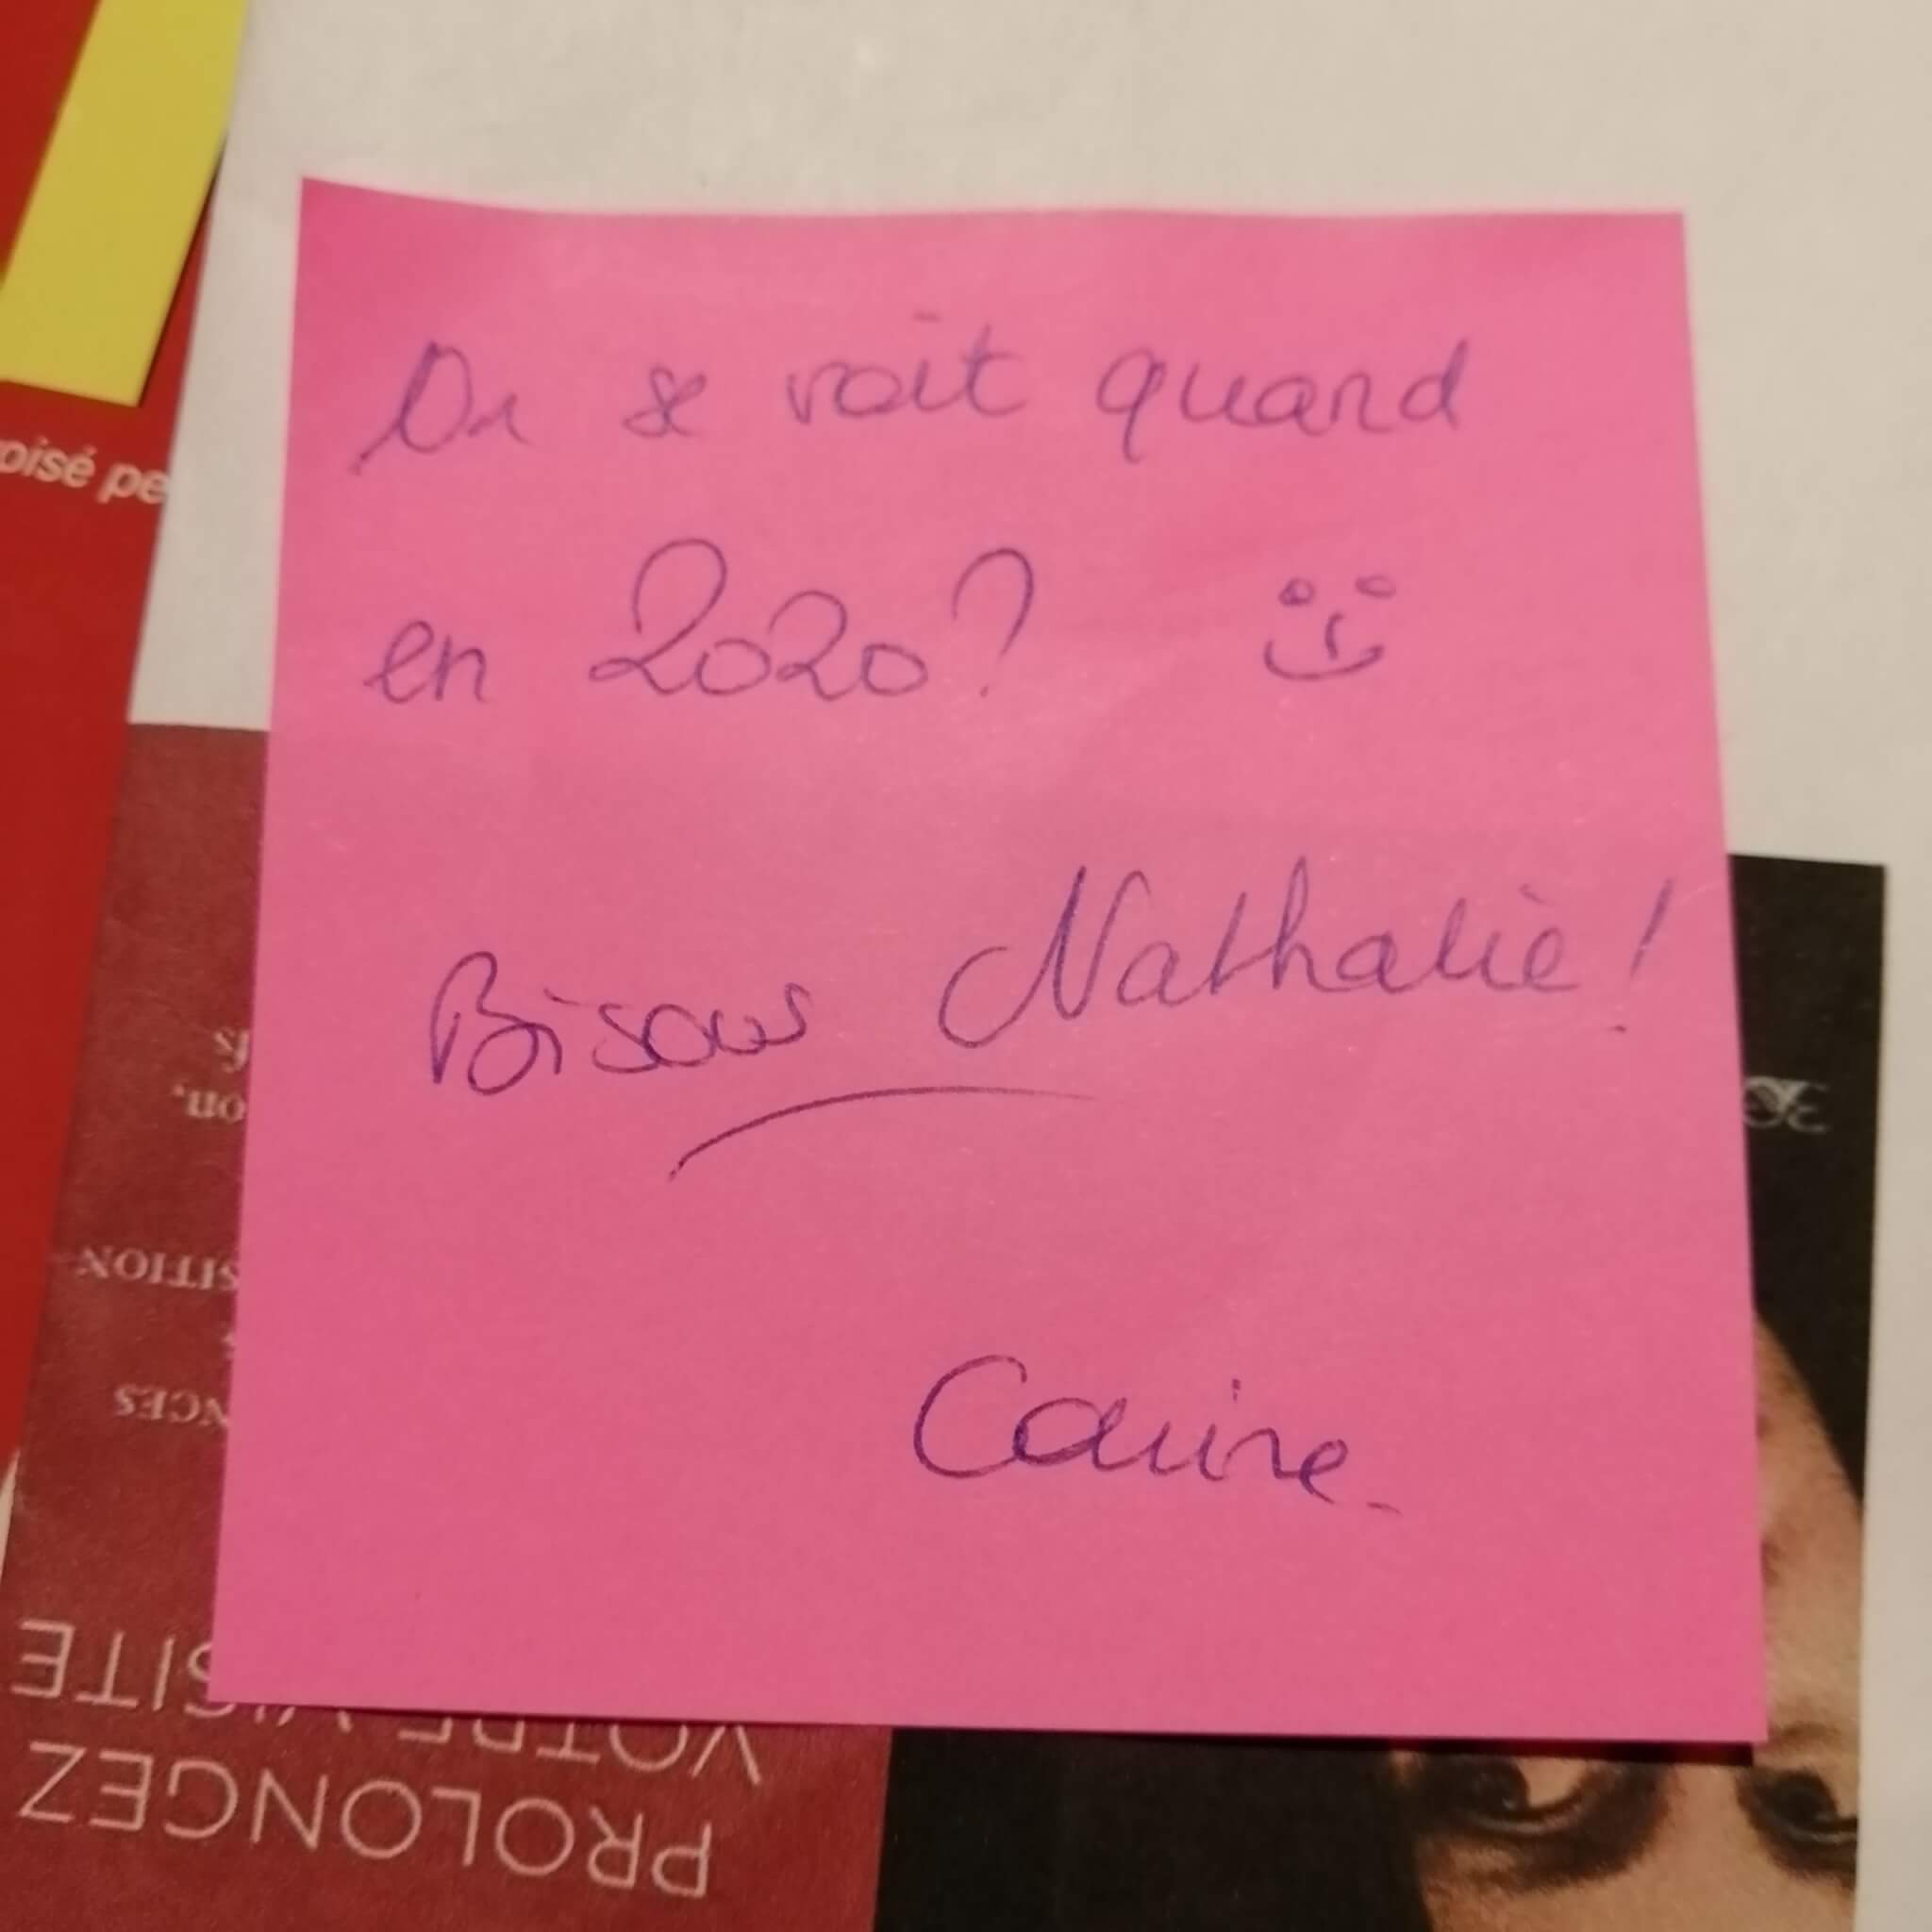 On se voit quand
en 2020 ?
Bisous Nathalie !
Carine.
oisé pe
on,
SITION
NCES
VOTRE VISITE
PROLONGEZ